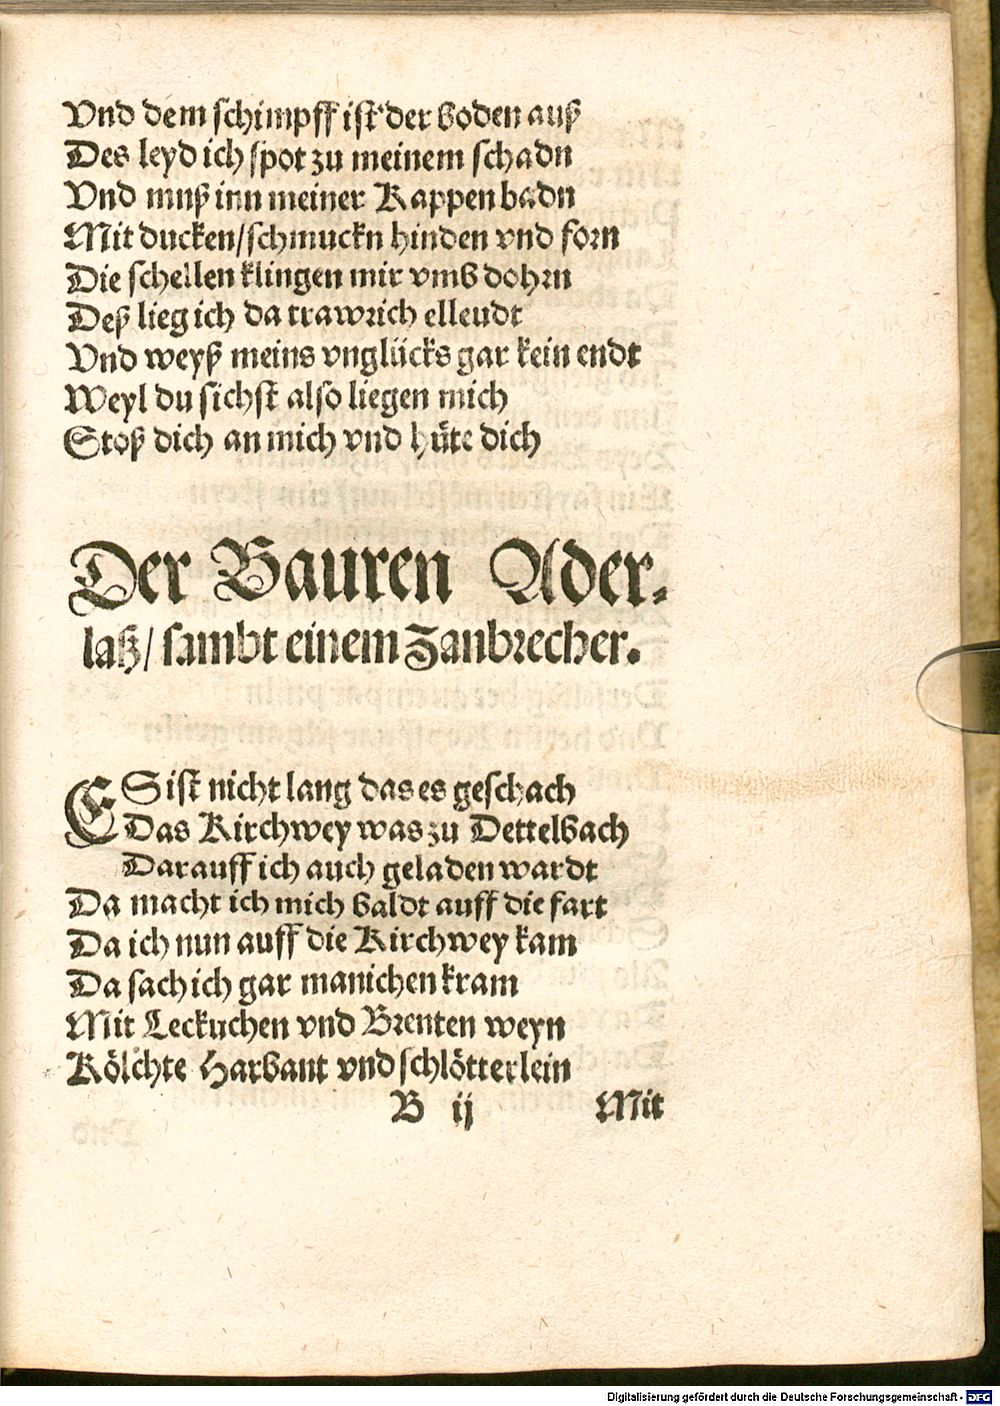 Vnd dem schimpff ist der boden auß
Des leyd ich spot zu meinem schadn
Vnd muß inn meiner Kappen badn
Mit ducken/schmuckn hinden vnd forn
Die schellen klingen mir vmb dohrn
Deß lieg ich da trawrich ellendt
Vnd weyß meins vnglücks gar kein endt
Weyl du sichst also liegen mich
Stoß dich an mich vnd hüte dich
Der Bauren Ader-
laß/ sambt einem Zanbrecher.
ES ist nicht lang das es geschach
Das Kirchwey was zu Dettelbach
Darauff ich auch geladen wardt
Da macht ich mich baldt auff die fart
Da ich nun auff die Kirchwey kam
Da sach ich gar manichen kram
Mit Leckuchen vnd Brenten weyn
Kölchte Harbant vnd schlötterlein
B ij Mit
Digitalisierung gefördert durch die Deutsche Forschungsgemeinschaft - DFG